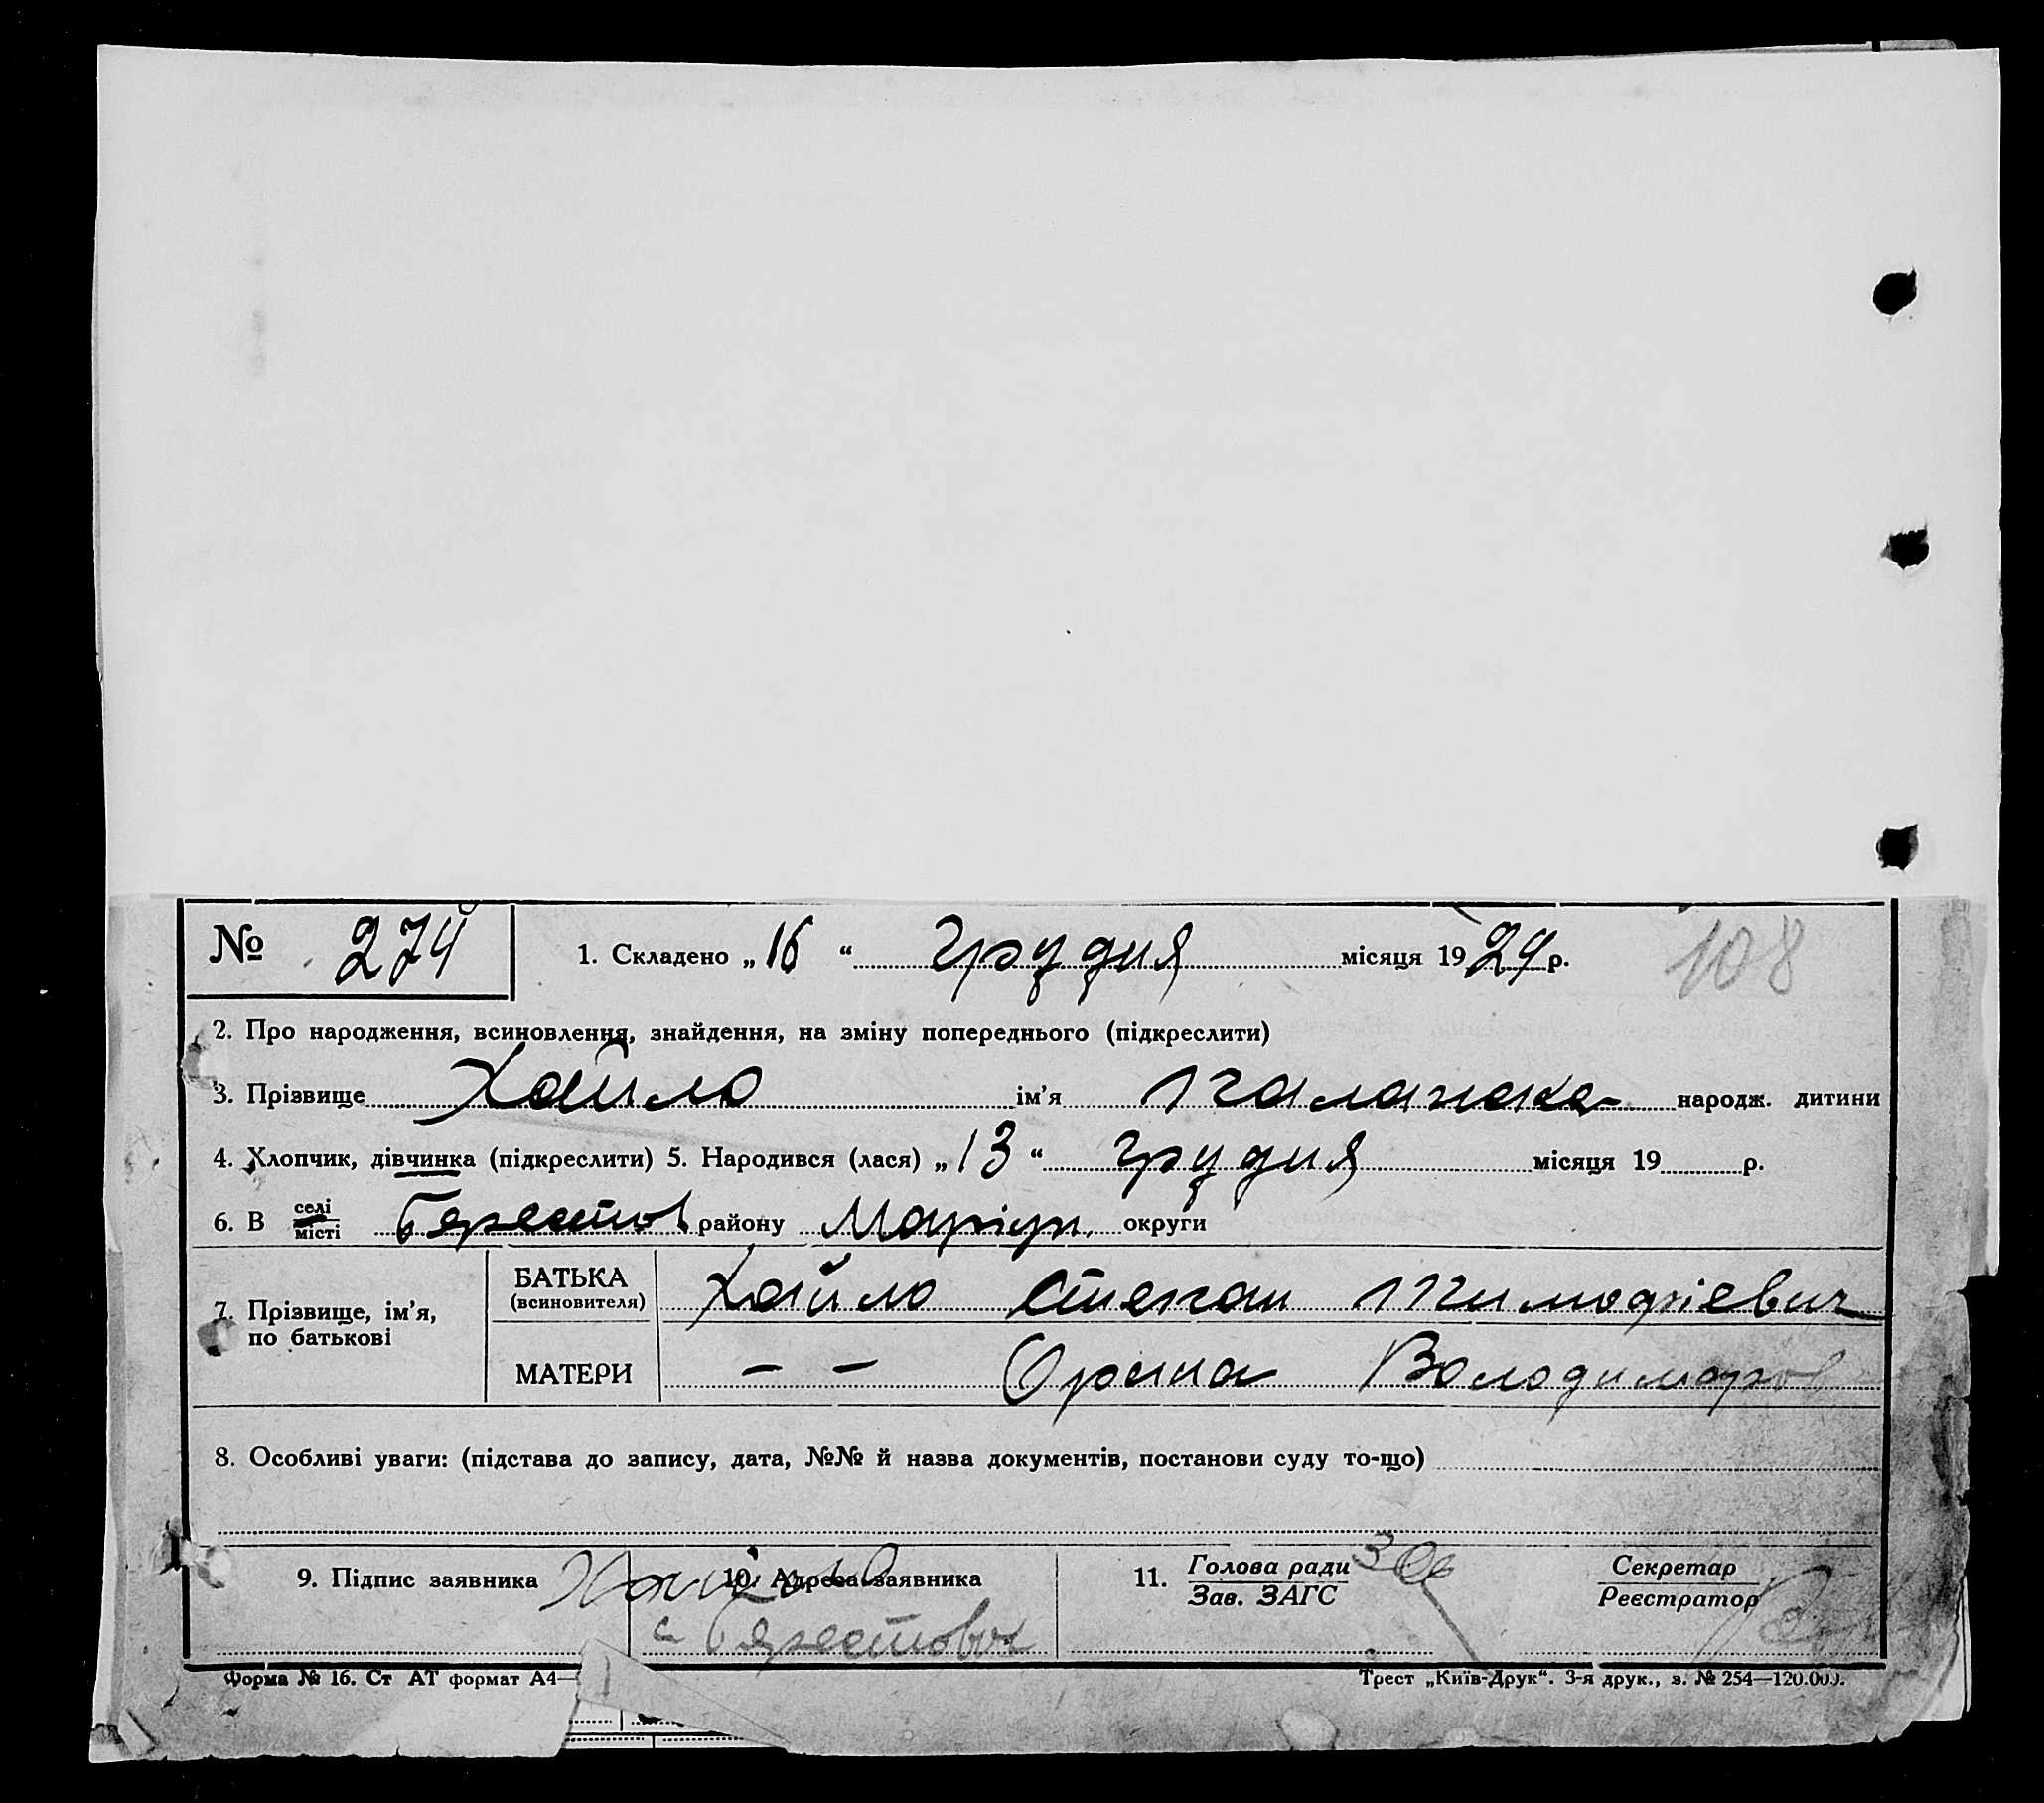 № 274 1. Складено „16“ грудня місяця 1929 р. 108
2. Про народження, всиновлення, знайдення, на зміну попереднього (підкреслити)
3. Прізвище Хайло ім’я народж. дитини
4. Хлопчик, дівчинка (підкреслити) 5. Народився (лася) „13“ грудня місяця 19 р.
6. В селі місті Берестов району Маріуп. округи
7. Прізвище, ім’я, по батькові
БАТЬКА (всиновителя) Хайло Степан Тимофіевич
МАТЕРИ – – Орина Володимиров
8. Особливі уваги: (підстава до запису, дата, №№ й назва документів, постанови суду то-що)
9. Підпис заявника Хайло 10. Адреса заявника 11. Голова ради Зав. ЗАГС Секретар Реєстратор
с Берестовка
Форма № 16. Ст АТ формат А4— Трест „Київ-Друк“. 3-я друк., з. № 254—120.000.